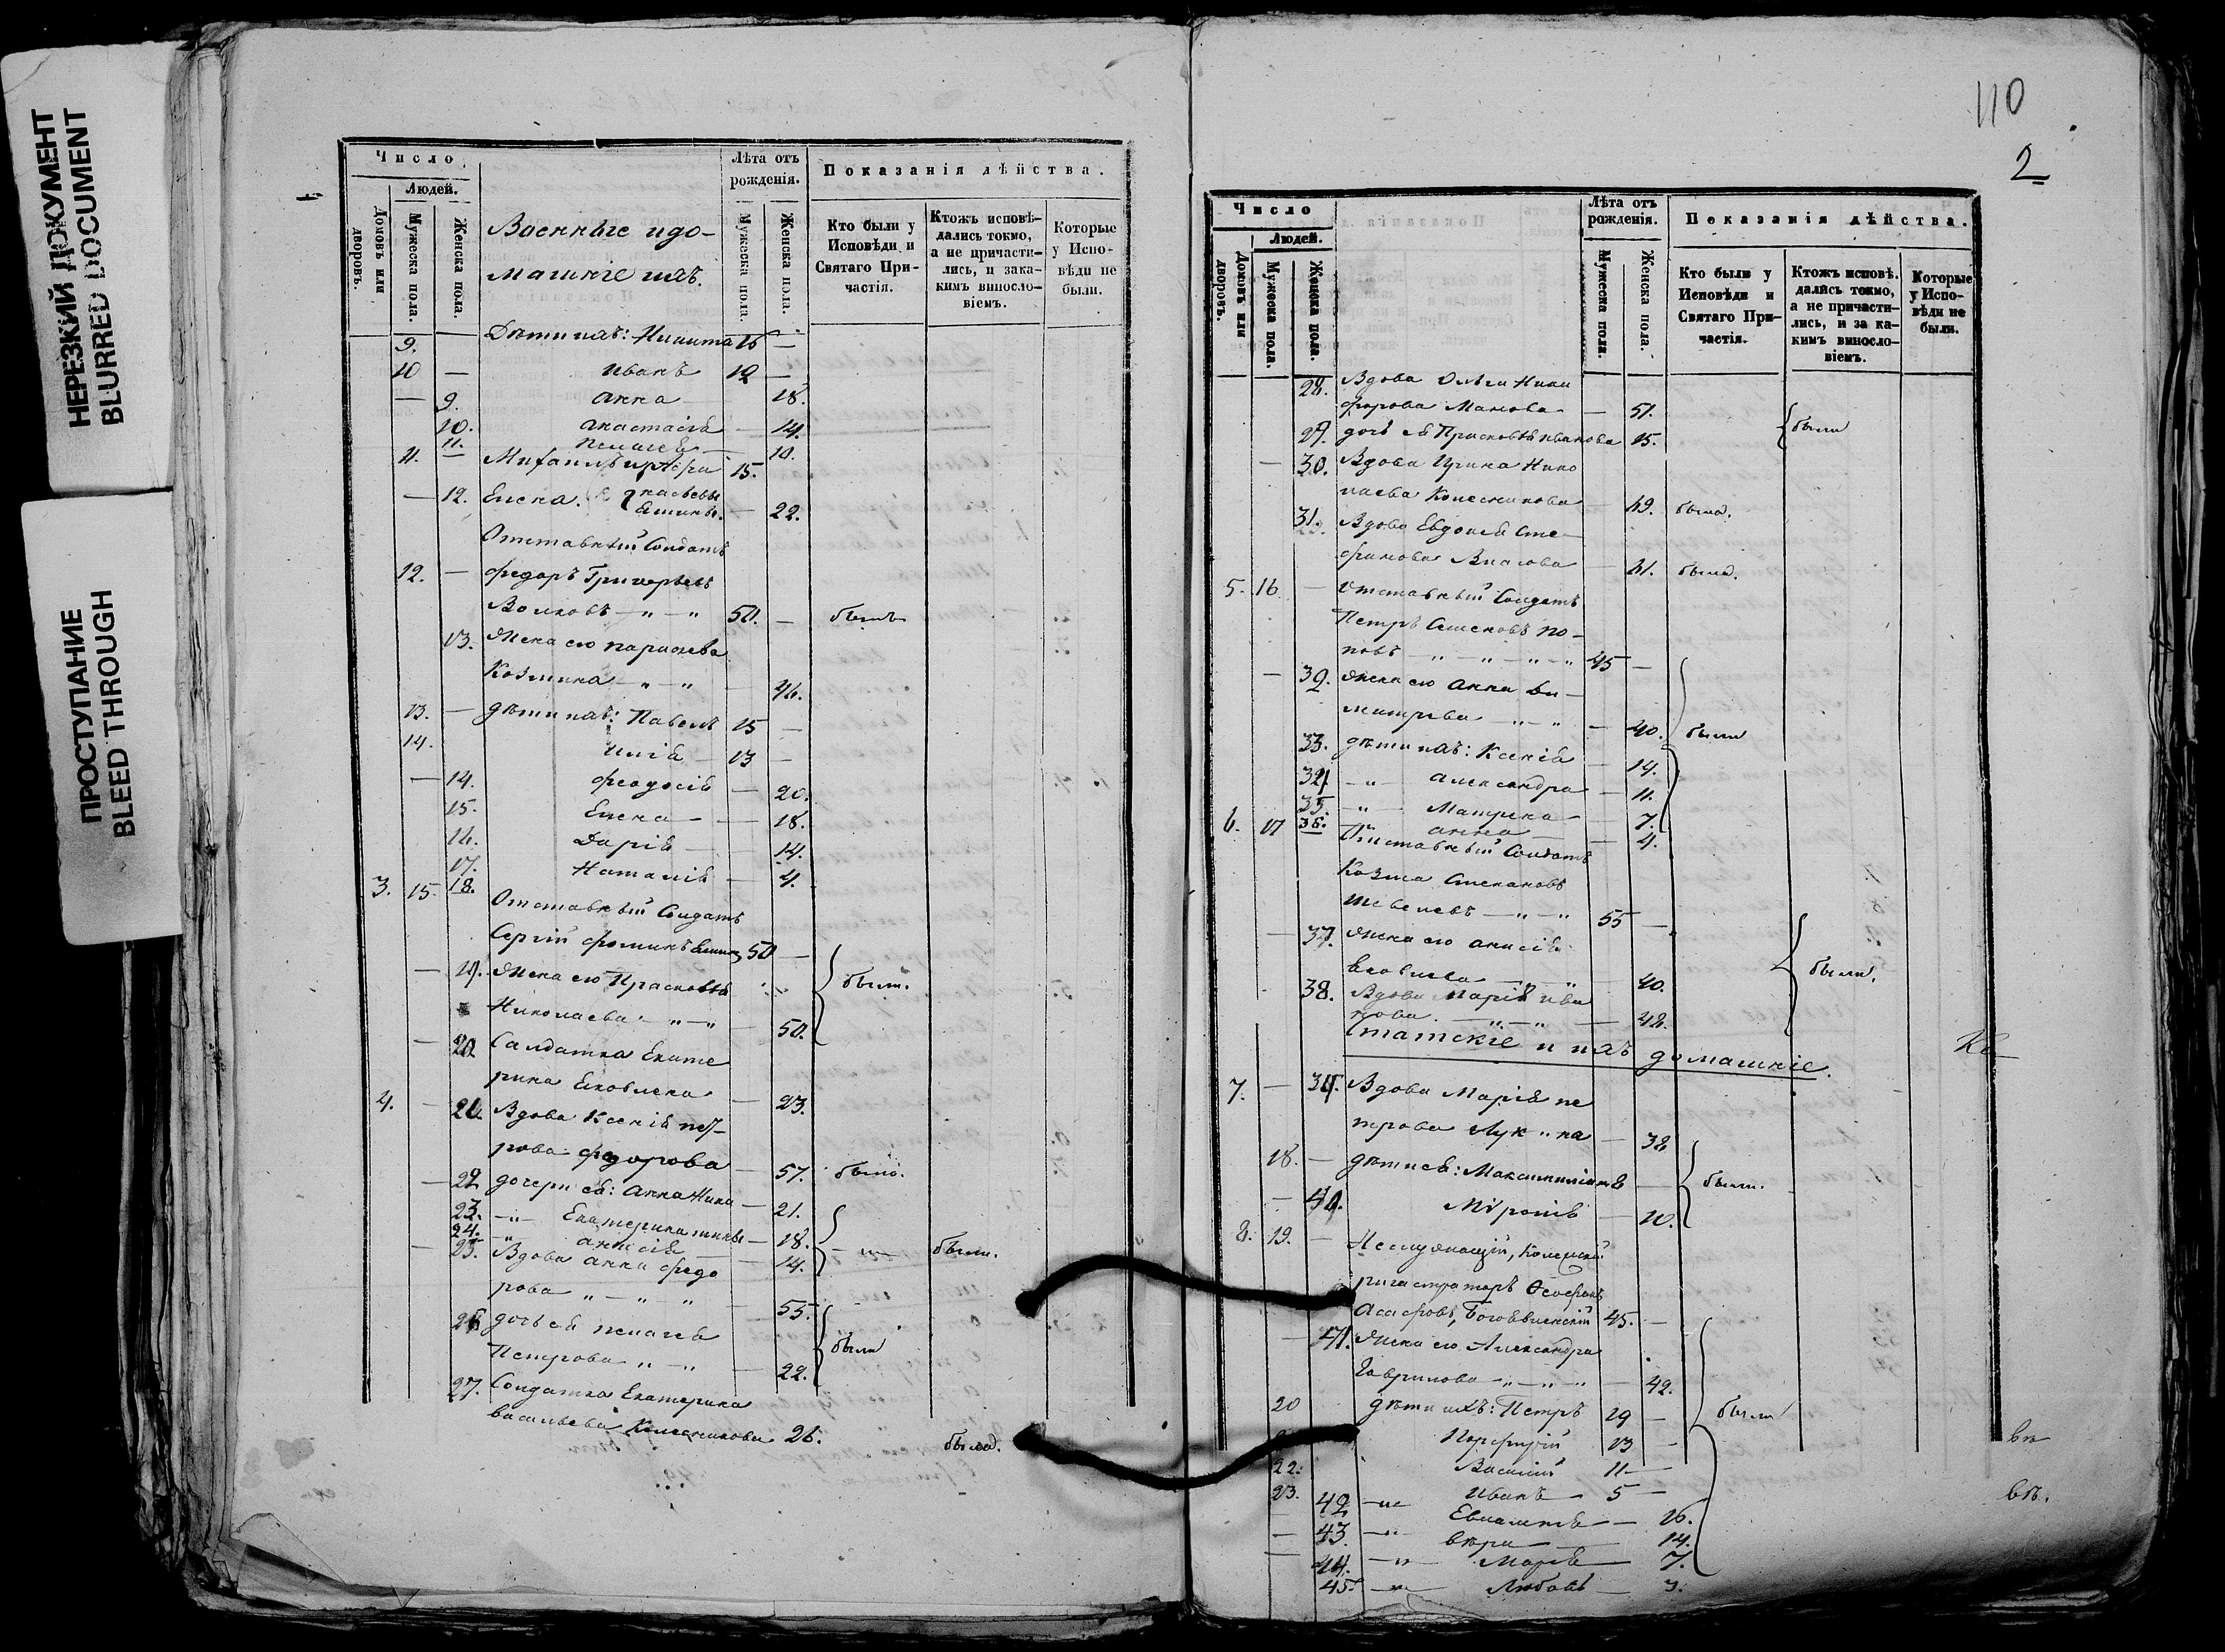 НЕРЕЗКИЙ ДОКУМЕНТ
BLURRED DOCUMENT
ПРОСТУПАНИЕ
BLEED THROUGH
Число
Людей.
Домовъ или дворовъ.
Мужеска пола.
Женска пола.
Военные и до-
машніе ихъ.
Лѣта отъ рожденія.
Мужеска пола.
Женска пола.
Показанія дѣйства.
Кто были у Исповѣди и Святаго Причастія.
Ктожъ исповѣдались токмо, а не причастились, и за какимъ винословіемъ.
Которые у Исповѣди не были.
9. — Дѣти ихъ: Никита 16 —
10 — Иванъ 12 —
— 9. Анна 18.
10. Анастасія — 14.
11. Пелагея — 10.
11. — Михаилъ 15.
— 12. Елена. — 22.
Отставный Солдатъ
12. — Федоръ Григорьевъ
Волковъ — " — " 50. — былъ
13. Жена его
Козмина — " — " — 46.
13. — дѣти ихъ: Павелъ 15 —
14. Илія 13 —
— 14. Феодосія — 20.
15. Елена — 18.
16. Дарія — 14.
17. Наталія — 4.
3. 15. 18.
Отставный Солдатъ
Сергій Фоминъ 50 —
— 19. Жена его Прасковья были.
Николаева — " — " — 50.
— 20 Салдатка Екате
рина Яковлева — 23.
4. — 21. Вдова Ксенія пет-
рова Федорова — 57. была.
— 22 дочери ея: Анна — 21.
23. — " Екатерина — 18.
24. — " Анисія 14. были.
— 25. Вдова Анна федо
рова " — " — " — 55.
26 дочь ея Пелагея были
Петрова " — " — 22.
27. Солдатка Екатерина
васильева Колесникова 26. была.
110
2
Число
Людей.
Домовъ или дворовъ.
Мужеска пола.
Женска пола.
Лѣта отъ рожденія.
Мужеска пола.
Женска пола.
Показанія дѣйства.
Кто были у Исповѣди и Святаго Причастія.
Ктожъ исповѣдались токмо, а не причастились, и за какимъ винословіемъ.
Которые у Исповѣди не были.
28. Вдова Ники
форова — 51. были
29. дочь ея Прасковья Иванова 15.
— 30. Вдова Ирина Нико
лаева Колесникова — 49. была.
31. Вдова Евдокія Сте
фанова Власова — 41. была.
5. 16 — Отставный Солдатъ
Петръ Семеновъ По-
повъ — " — " — " — " 45 —
— 32. Жена его Анна Ди-
митріева — " — " — 40. были
33. дѣти ихъ: Ксенія — 14.
34 — " Александра — 11.
35. — " Матрена — 7.
36. Анна — 4.
6. 17 Отставный Солдатъ
Козма Степановъ
Шевелевъ — " — " 55 —
— 37. Жена его Анисія
Яковлева — " — 40. были.
38. Вдова Марія Ива
нова. — " — " — 48.
Статскіе и ихъ домашніе.
7. — 39. Вдова Марія пе
трова — 38
18. — дѣти ея: Максимиліанъ — были.
— 40. Міронія — 10.
8. 19. —
регистраторъ Феофанъ
Богоявленскій 45. —
— 41. Жена его Александра
Гаврилова — " — " — " — 42.
20 дѣти ихъ: Петръ 19 — были
Порфирій 13 —
22. Василій 11 —
23. Иванъ 5 —
— 42 — " Евлампія — 16.
— 43 — " Вѣра — 14.
— 44. — " Марія — 7.
45. — " Любовь — 3.